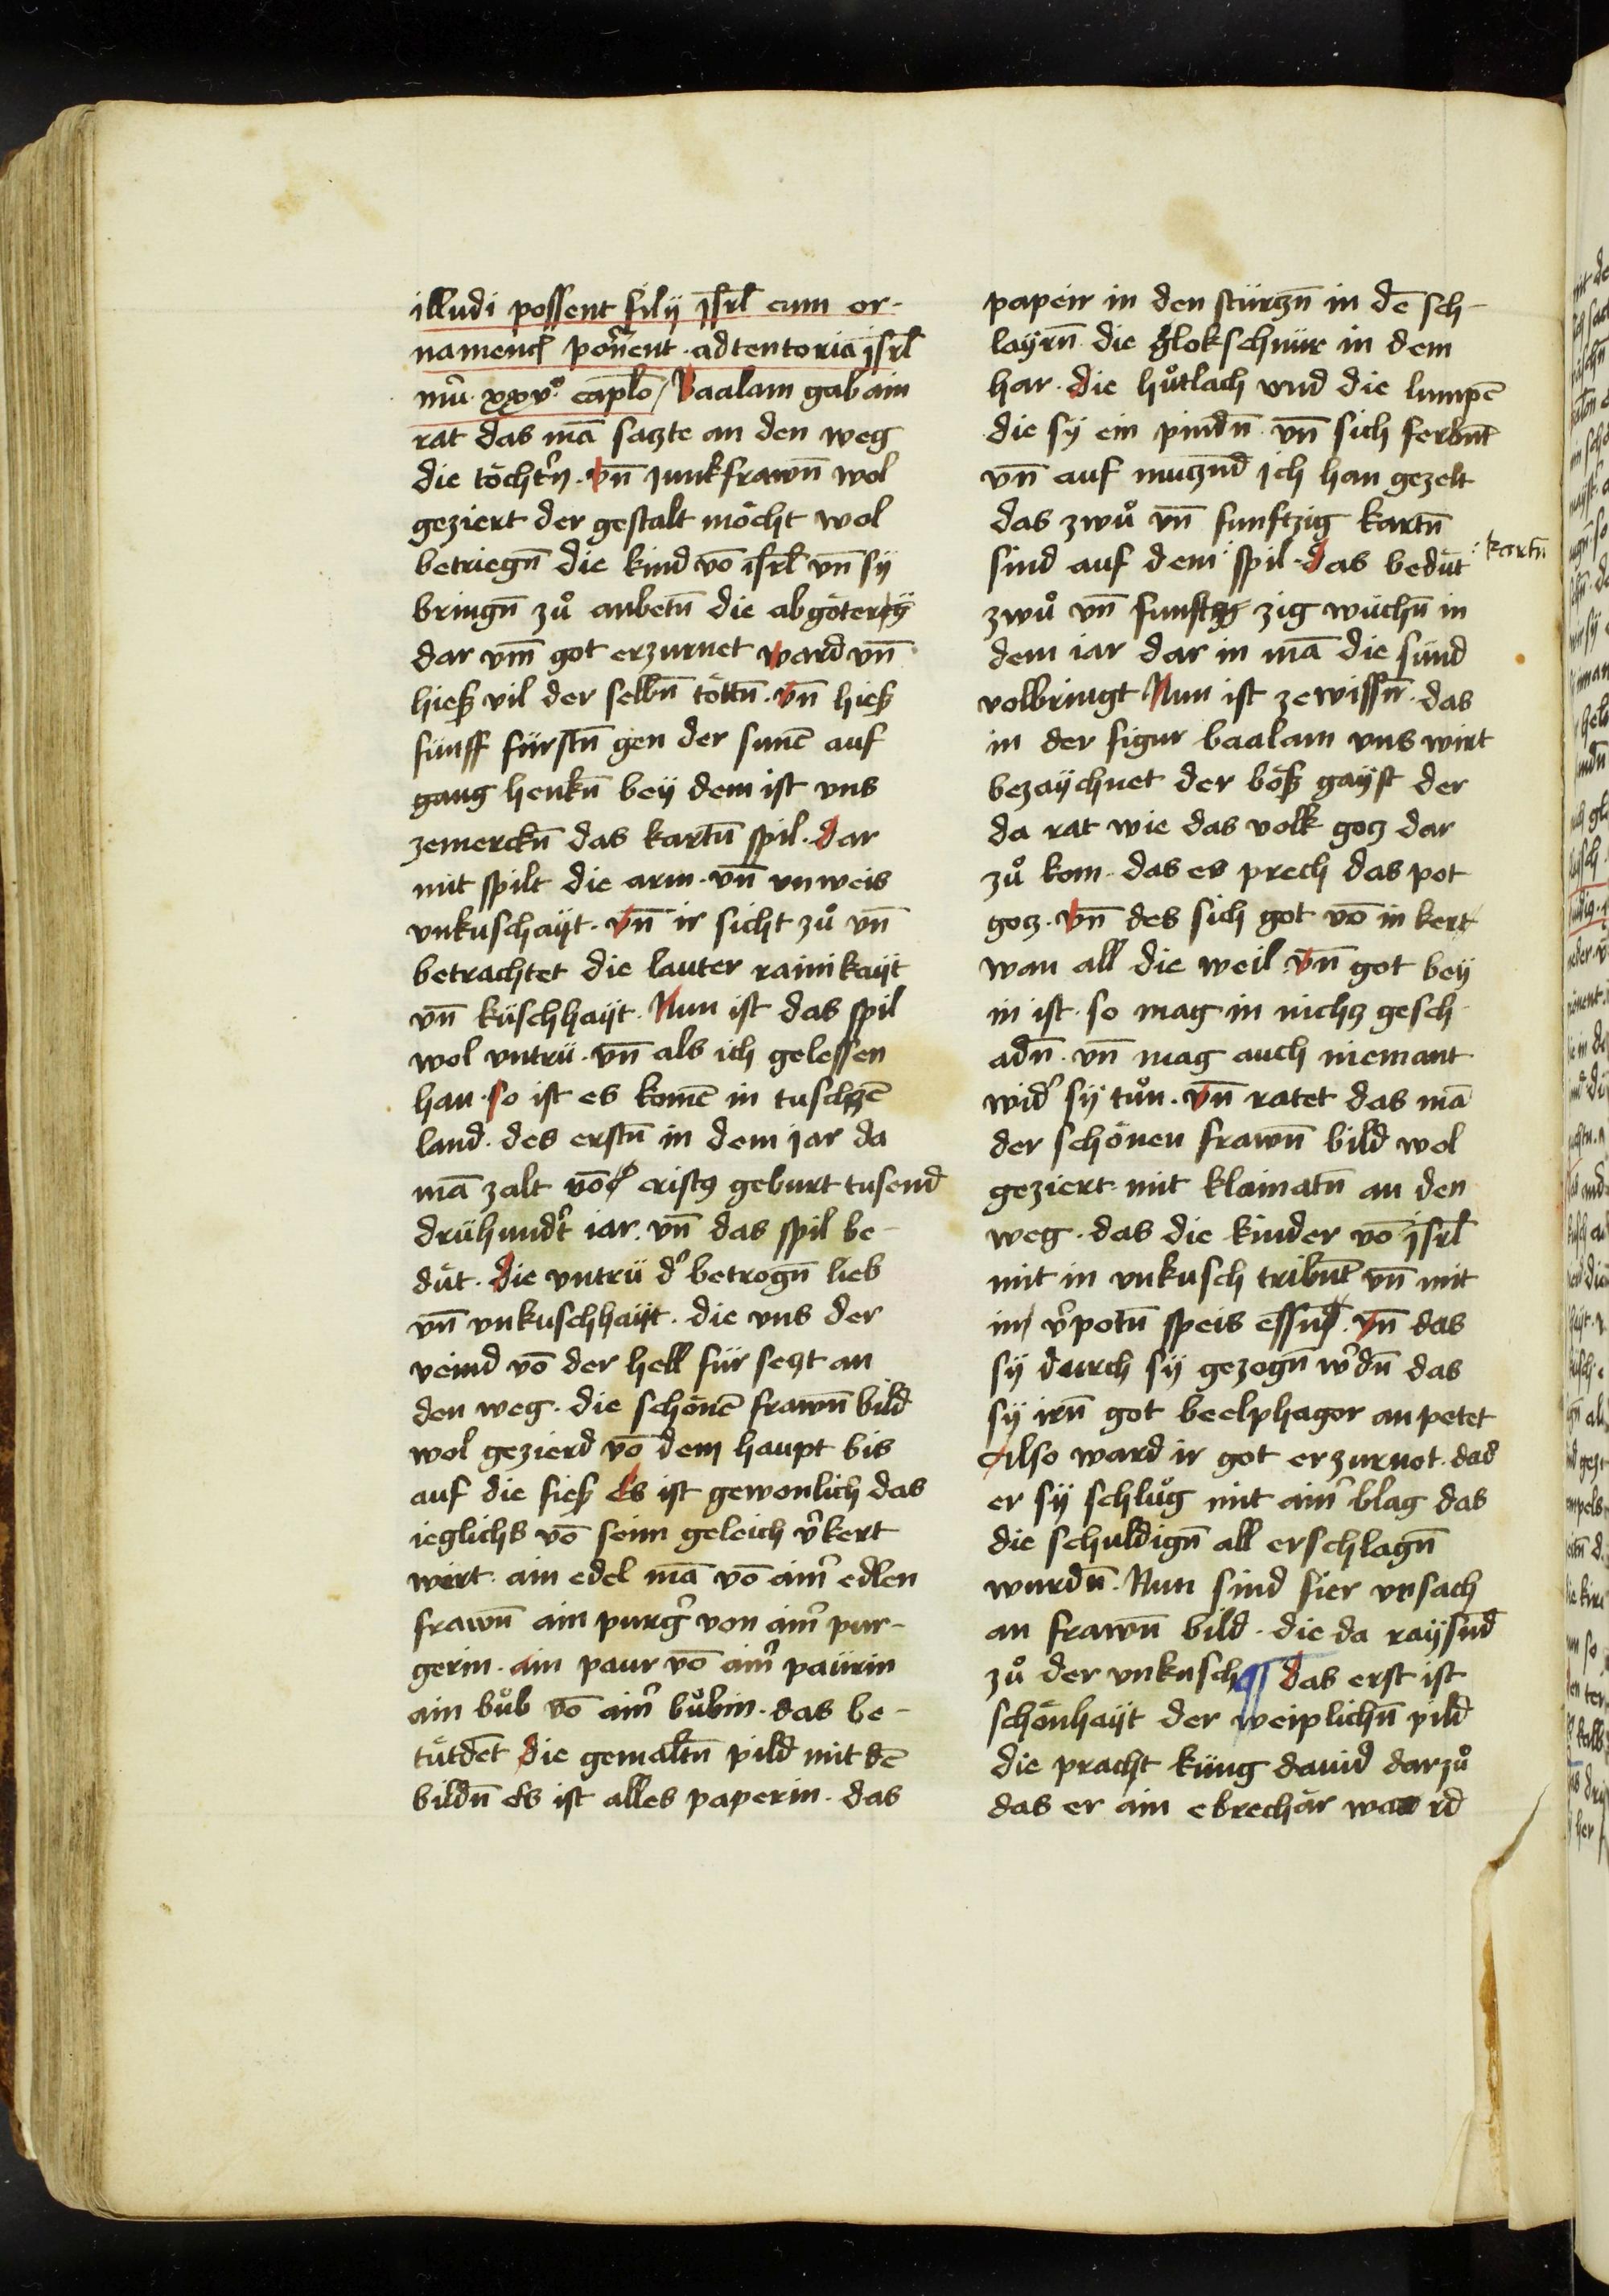 illudi possent filij jsrl̄ cum or-
namentꝭ ponēent · ad tentoria jsrl̄
nūi · xxv° cap̄lo / Baalam gab ain
rat das mā sazte an den weg
die töchtr̄n · vn̄ junkfrawn̄ wol
geziert der gestalt möcht wol
betriegn̄ die kind vō isrl̄ vn̄ sÿ
bringn̄ zů anbetn̄ die abgöterÿ
dar vm̄ got erzurnet ward vn̄
hieß vil der selbn̄ töttn̄ · vn̄ hieß
fünff fürstn̄ gen der sunē auf
gang henkn̄ beÿ dem ist vns
zemerckn̄ das kartn̄ spil · dar
mit spilt die arm · vn̄ vnweis
vnkuschaÿt · vn̄ ir sicht zů vn̄
betrachtet die lauter rainikaÿt
vn̄ küschhaÿt · Nun ist das spil
wol vntrü · vn̄ als ich gelessen
han · so ist es komē in tuschzē
land · des erstn̄ in dem jar da
mā zalt vō cristꝰ geburt tusend
drühundt̄ iar · vn̄ das spil be-
düt · die vntrü d' betrogn̄ lieb
vn̄ vnkuschhaÿt · die vns der
veind vō der hell für sezt an
den weg · die schönē frawn̄ bild
wol gezierd vō dem haupt bis
auf die fieß Es ist gewonlich das
ieglichs vō seim geleich v̄kert
wirt · ain edel mā vō aim̄ edlen
frawn̄ ain purḡ von aim̄ pur-
gerin · ain paur vō aim̄ paürin
ain bůb vō aim̄ bůbin · das be-
tütdet die gemaltn̄ pild mit dē
bildn̄ Es ist alles paperin · das
papeir in den stürczn̄ in dē sch-
laÿrn̄ die glokschnür in dem
har · die hůtlach vnd die lumpē
die sÿ ein pindn̄ · vn̄ sich ferbn̄t
vn̄ auf muczn̄d ich han gezelt
das zwů vn̄ funftzig kartn̄
sind auf dem spil · das bedüt
: kartn̄
zwů vn̄ funftzig wüchn̄ in
dem iar dar in mā die sünd
volbringt Nun ist zewissn̄ · das
in der figur baalam vns wirt
bezaÿchnet der böß gaÿst der
da rat wie das volk gocz dar
zů kom · das es prech das pot
gocz · vn̄ des sich got vō in kert
wan all die weil · vn̄ got beÿ
in ist · so mag in nichz gesch
adn̄ · vn̄ mag auch niemant
wid' sÿ tůn · vn̄ ratet das mā
der schönen frawn̄ bild wol
geziert mit klainatn̄ an den
weg · das die kinder vō jsrl̄
mit in vnkusch tribn̄t vn̄ mit
in v̄potn̄ speis essn̄ · vn̄ das
sÿ durch sÿ gezogn̄ w̄dn̄ das
sÿ irn̄ got beelphagor an petet
Also ward ir got erzurnot · das
er sÿ schlůg mit aim̄ blag das
die schuldign̄ all erschlagn̄
wurdn̄ · Nun sind fier vrsach
an frawn̄ bild · die da raÿsn̄d
zů der vnkusch ¶ das erst ist
schönhaÿt der weiplichn̄ pild
die pracht küng dauid darzů
das er ain ebrechär waard